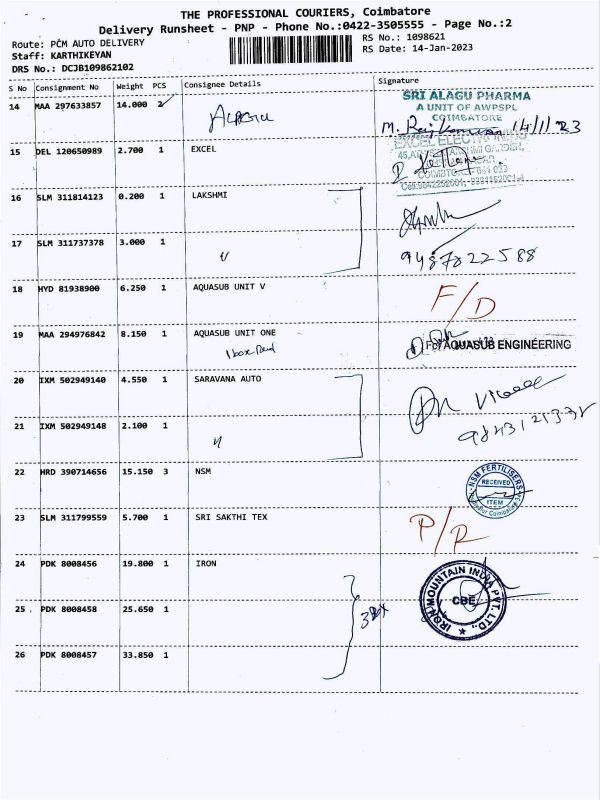 THE PROFESSIONAL COURIERS, Coimbatore
Delivery Runsheet - PNP - Phone No.:0422-3505555 - Page No.:2
Route: PCM AUTO DELIVERY
RS No.: 1098621
Staff: KARTHIKEYAN
RS Date: 14-Jan-2023
DRS No.: DCJB109862102
S No Consignment No Weight PCS Consignee Details Signature
14 MAA 297633857 14.000 2
SRI ALAGU PHARMA
A UNIT OF AWPSPL
COIMBATORE
14/1/23
15 DEL 120650989 2.700 1 EXCEL
EXCEL ELECTRONICS
16 SLM 311814123 0.200 1 LAKSHMI
17 SLM 311737378 3.000 1 "
9487822588
18 HYD 81938900 6.250 1 AQUASUB UNIT V F/D
19 MAA 294976842 8.150 1 AQUASUB UNIT ONE
1 box
For AQUASUB ENGINEERING
20 IXM 502949140 4.550 1 SARAVANA AUTO
21 IXM 502949148 2.100 1 "
22 HRD 390714656 15.150 3 NSM
NSM FERTILISERS
RECEIVED
ITEM
23 SLM 311799559 5.700 1 SRI SAKTHI TEX P/R
24 PDK 8008456 19.800 1 IRON
IRON MOUNTAIN INDIA PVT. LTD.,
CBE
25 PDK 8008458 25.650 1
3 Box
26 PDK 8008457 33.850 1